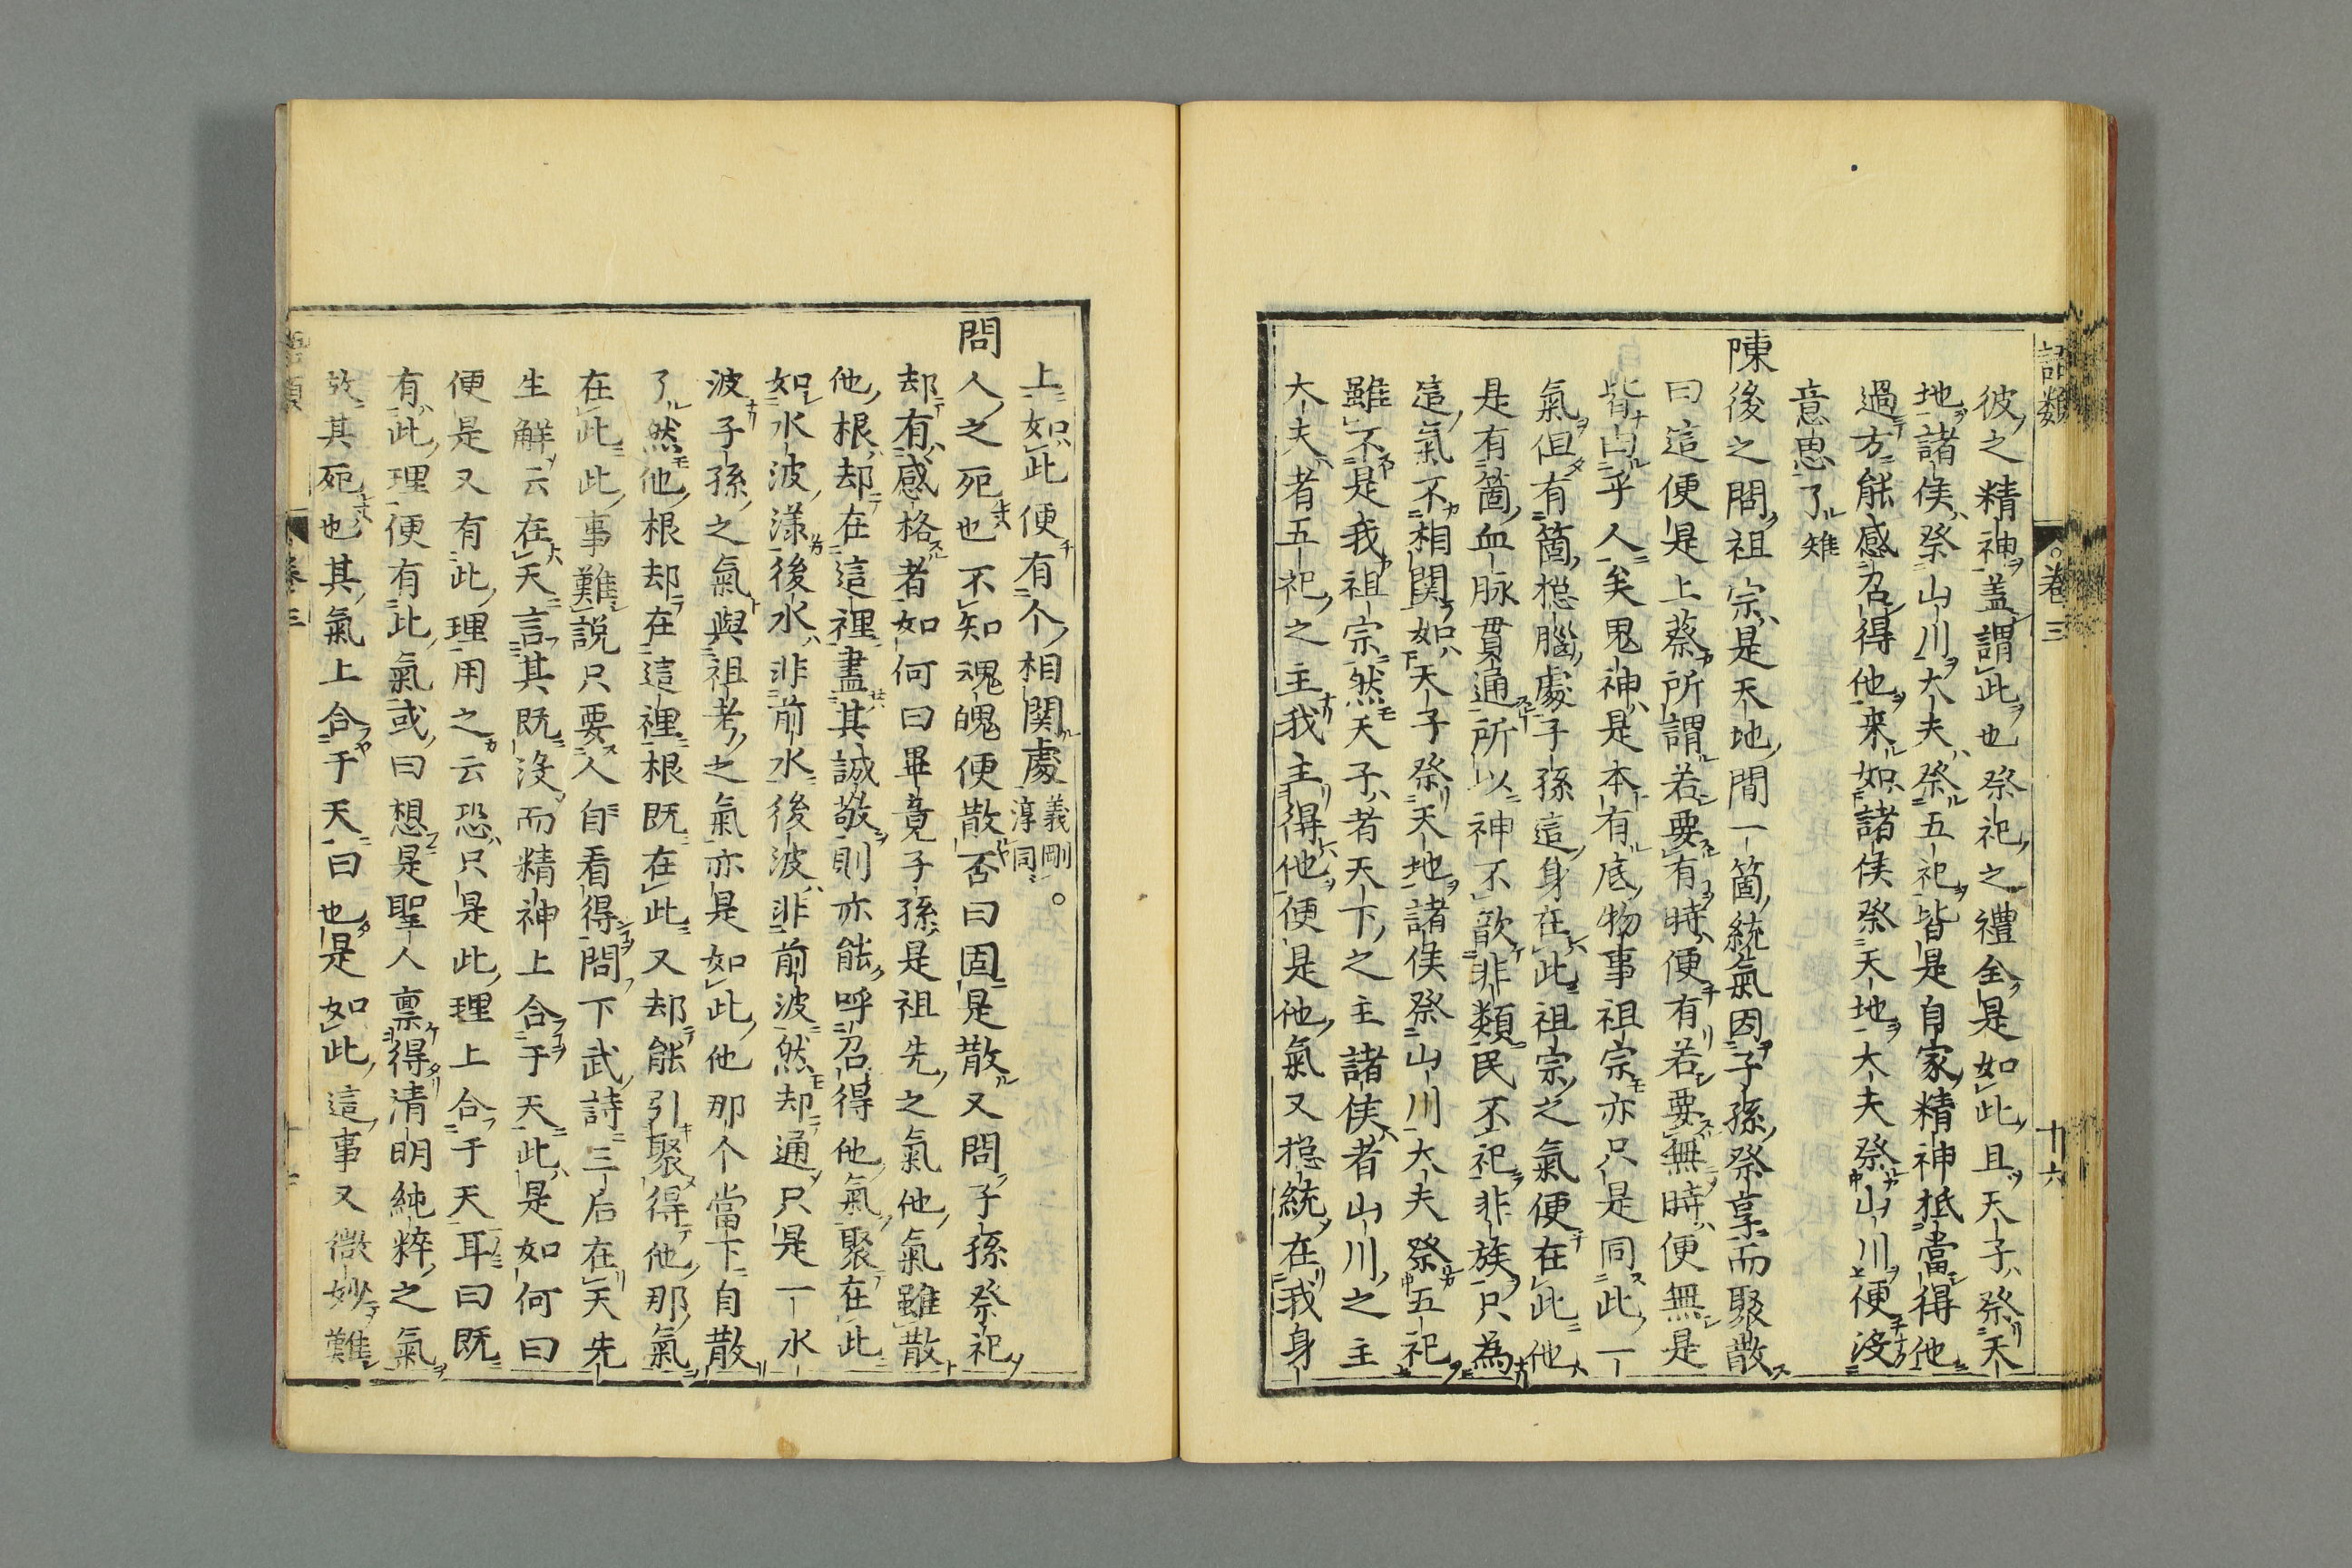 語類
卷三
十六
彼之精神蓋謂此也祭祀之禮全是如此且天子祭天
地諸侯祭山川大夫祭五祀皆是自家精神抵當得他
過方能感召得他来如諸侯祭天地大夫祭山川便沒
意思了雉
陳後之問祖宗是天地間一箇統氣因子孫祭享而聚散
曰這便是上蔡所謂若要有時便有若要無時便無是
皆由乎人矣鬼神是本有底物事祖宗亦只是同此一
氣但有箇揔腦處子孫這身在此祖宗之氣便在此他
是有箇血脉貫通所以神不歆非類民不祀非族只為
這氣不相関如天子祭天地諸侯祭山川大夫祭五祀
雖不是我祖宗然天子者天下之主諸侯者山川之主
大夫者五祀之主我主得他便是他氣又揔統在我身
上如此便有个相関處義剛淳同
問人之死也不知魂魄便散否曰固是散又問子孫祭祀
却有感格者如何曰畢竟子孫是祖先之氣他氣雖散
他根却在這裡盡其誠敬則亦能呼召得他氣聚在此
如水波漾後水非前水後波非前波然却通只是一水
波子孫之氣與祖考之氣亦是如此他那个當下自散
了然他根却在這裡根既在此又却能引聚得他那氣
在此此事難説只要人自看得問下武詩三后在天先
生解云在天言其既沒而精神上合于天此是如何曰
便是又有此理用之云恐只是此理上合于天耳曰既
有此理便有此氣或曰想是聖人禀得清明純粹之氣
故其死也其氣上合于天曰也是如此這事又微妙難